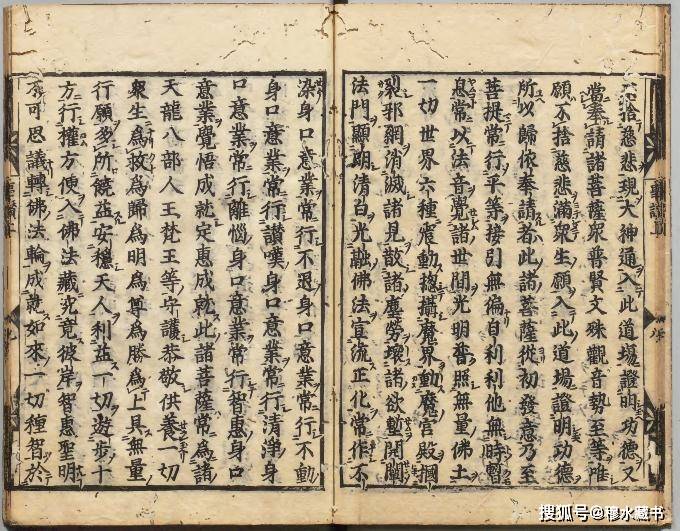 捨慈悲現大神通入此道場證明功德又
當奉請諸菩薩衆普賢文殊觀音勢至等唯
願不捨慈悲滿衆生願入此道場證明功德
所以歸依奉請者此諸菩薩從初發意乃至
菩提常行平等接引無偏自利利他無時暫
息常以法音覺諸世間光明普照無量佛土
一切世界六種震動摠攝魔界動魔宮殿摑
裂邪網消滅諸見散諸塵勞壞諸欲塹開闡
法門顯明清白光融佛法宣流正化常作不
染身口意業常行不退身口意業常行不動
身口意業常行讃嘆身口意業常行清淨身
口意業常行離惱身口意業常行智惠身口
意業覺悟成就定惠成就此諸菩薩常爲諸
天龍八部人王梵王等守護恭敬供養一切
衆生爲救爲歸爲明爲尊爲勝爲上具無量
行願多所饒益安穩天人利益一切遊步十
方行權方便入佛法藏究竟彼岸智惠聖明
不可思議轉佛法輪成就如來一切種智於
搜狐号@穆水藏书